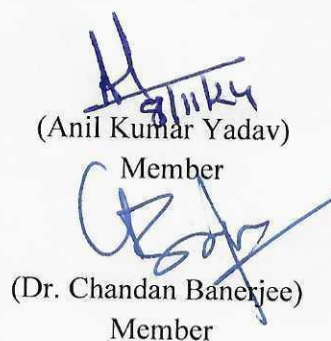 8/11/24
(Anil Kumar Yadav)
Member
(Dr. Chandan Banerjee)
Member